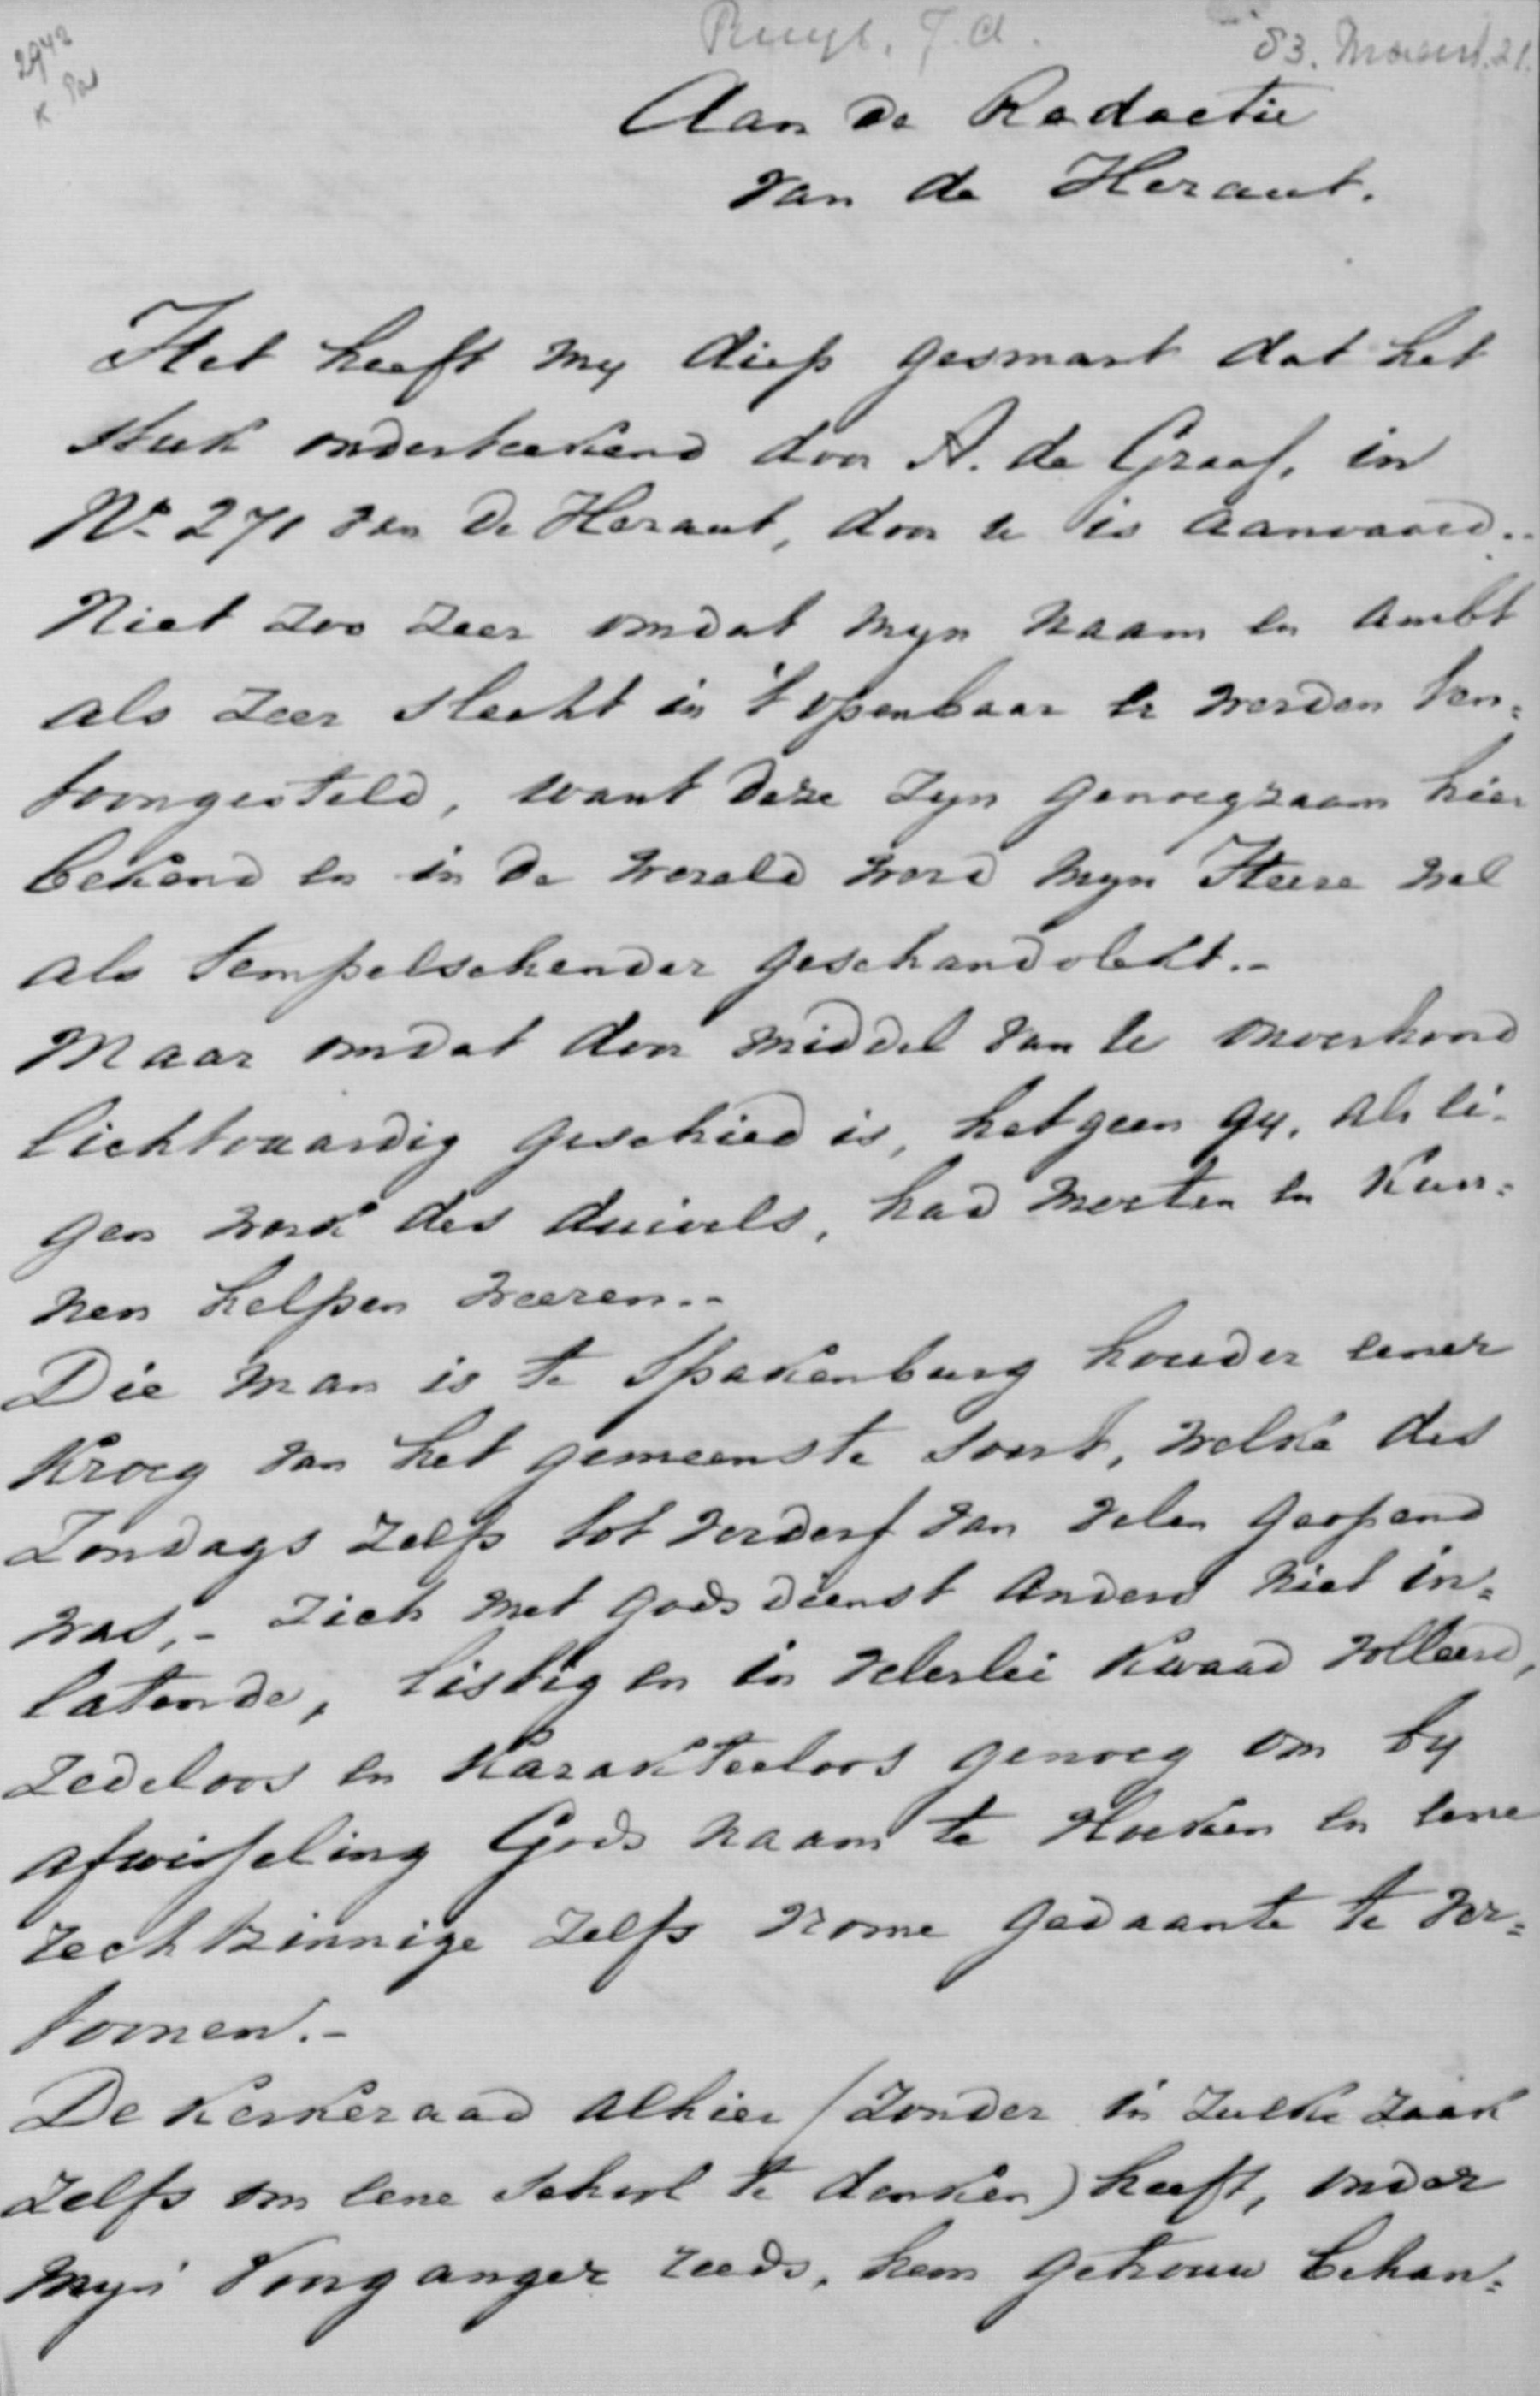 2942
K
Ruys, J.A.
83. Maart. 21.
Aan de Redactie
van de Heraut.
Het heeft my diep gesmart dat het
stuk onderteekend door A. de Graaf, in
No. 271 van De Heraut, door u is aanvaard..
Niet zoo zeer omdat myn naam en ambt
als zeer slecht in 't openbaar er werden ten=
toongesteld, want deze zyn genoegzaam hier
bekend en in de wereld werd myn Heere wel
als tempelschender geschandvlekt.-
Maar omdat door middel van te onverhoord
lichtvaardig geschied is, hetgeen gy, als li-
gen werk des duivels, had moeten en kun=
nen helpen weeren.-
Die man is te Spakenburg houder eener
kroeg van het gemeenste soort, welke des
Zondags zelfs tot verderf van velen geopend
was,- zich met godsdienst anders niet in=
latende, listig en in velerlei kwaad volleerd,
zedeloos en karakterloos genoeg om by
afwisseling Gods naam te vloeken en eene
rechtzinnige zelfs vrome gedaante te ver=
toonen.-
De kerkeraad alhier (zonder in zulke zaak
zelfs om eene school te denken) heeft, onder
myn' voorganger reeds, hem getrouw behan=